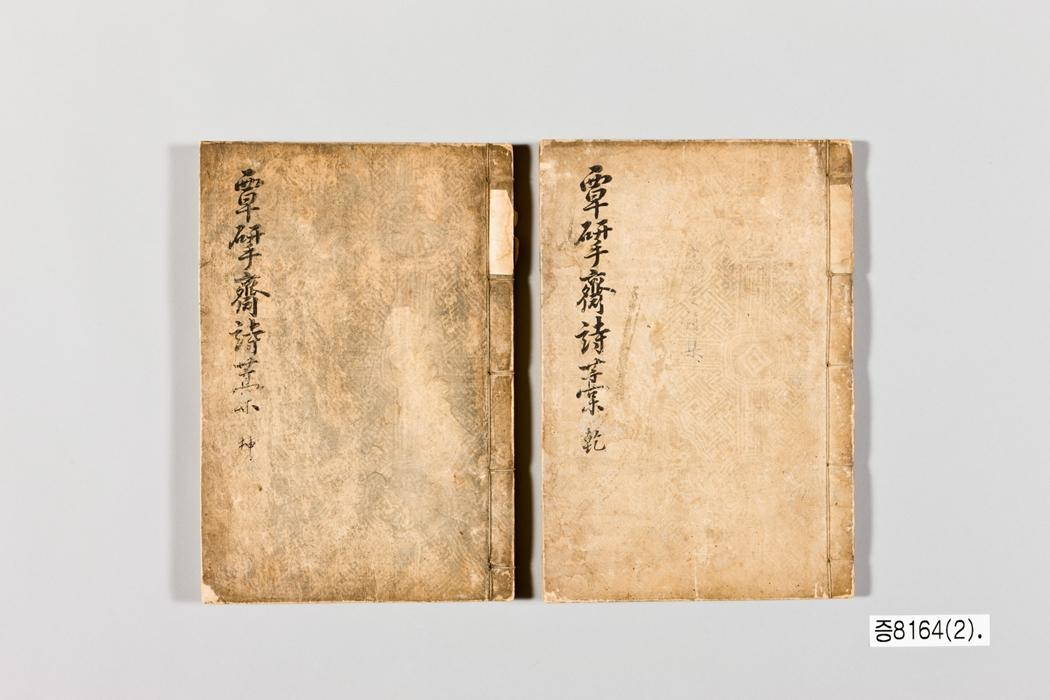 覃揅齋詩藁 乾
覃揅齋詩藁 坤
증8164(2).